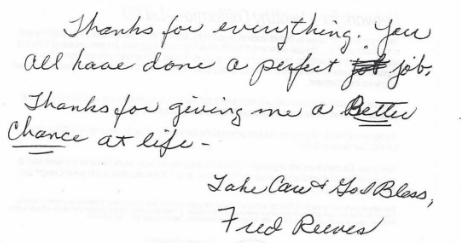 Thanks for everything. You
all have done a perfect job job.
Thanks for giving me a Better
Chance at life -
Take Care & God Bless,
Fred Reeves